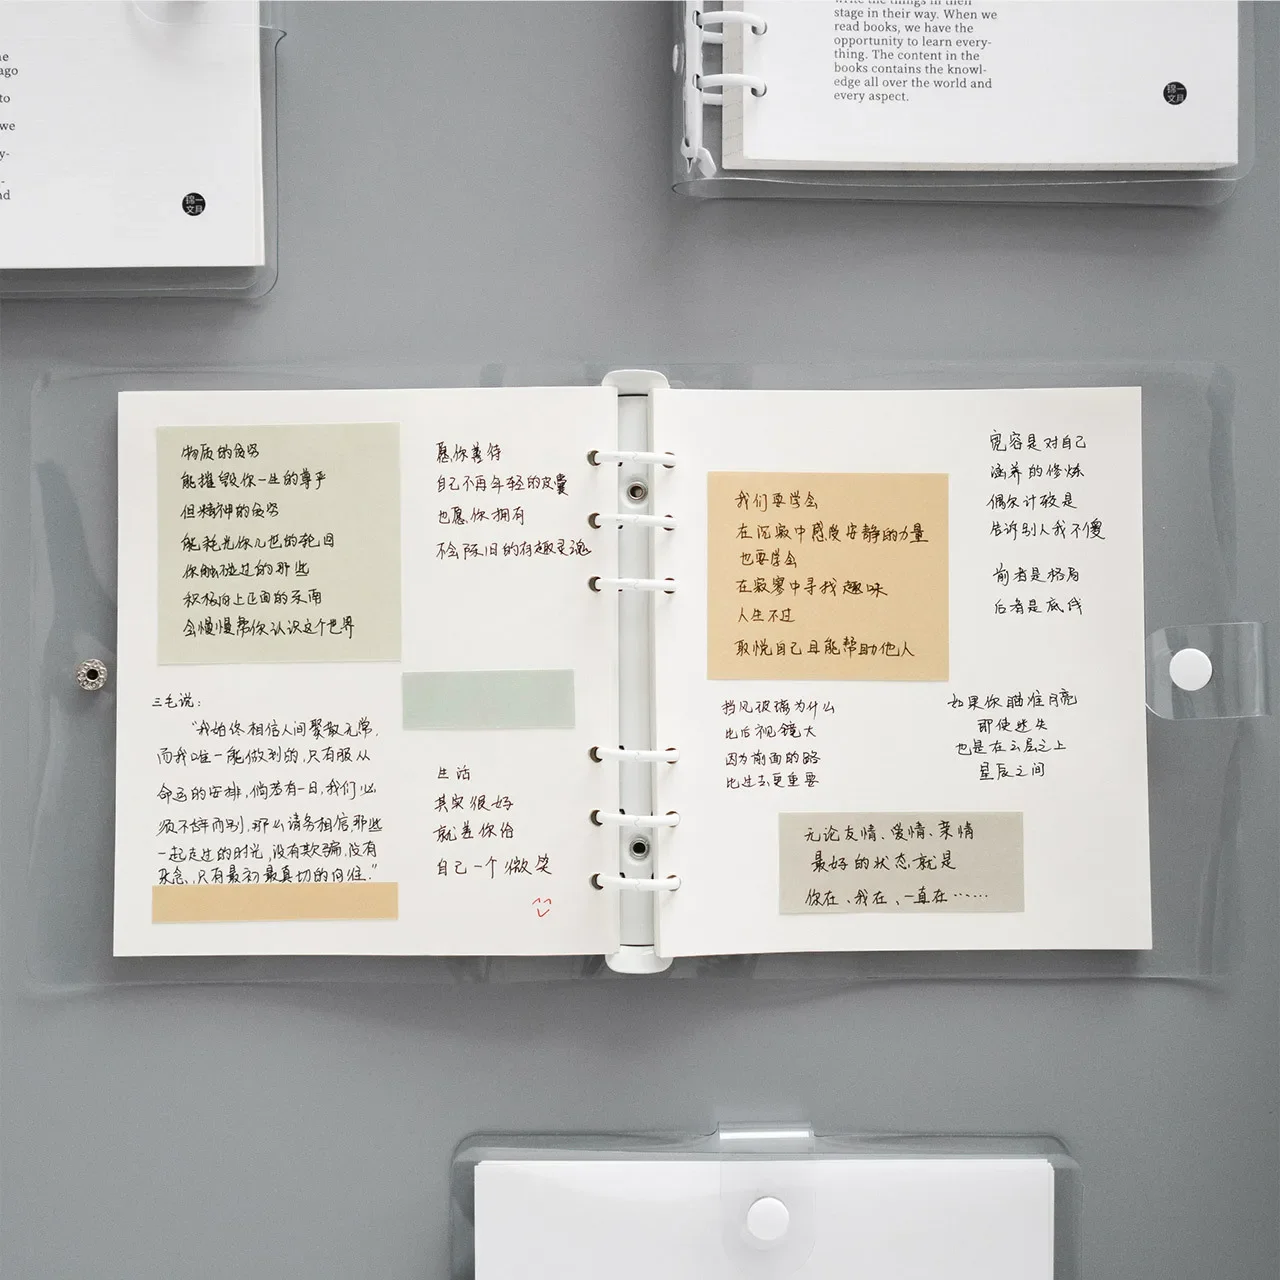 ago
to
we
锦一
文具
write the things in their
stage in their way. When we
read books, we have the
opportunity to learn every-
thing. The content in the
books contains the knowl-
edge all over the world and
every aspect.
锦一
文具
物质的贫穷
能摧毁你一生的尊严
但精神的贫穷
能耗光你几世的轮回
你触碰过的那些
积极向上正面的东西
会慢慢帮你认识这个世界
愿你善待
自己不再年轻的皮囊
也愿你拥有
不会陈旧的有趣灵魂
三毛说:
"我始终相信人间聚散无常,
而我唯一能做到的,只有服从
命运的安排,倘若有一日,我们必
须不辞而别,那么请务相信,那些
一起走过的时光,没有欺骗,没有
杂念,只有最初最真切的向往."
生活
其实很好
就差你给
自己一个微笑
我们要学会
在沉寂中感受安静的力量
也要学会
在寂寞中寻找趣味
人生不过
取悦自己且能帮助他人
宽容是对自己
涵养的修炼
偶尔计较是
告诉别人我不傻
前者是格局
后者是底线
挡风玻璃为什么
比后视镜大
因为前面的路
比过去更重要
如果你瞄准月亮
即使迷失
也是在云层之上
星辰之间
无论友情、爱情、亲情
最好的状态就是
你在、我在、一直在……